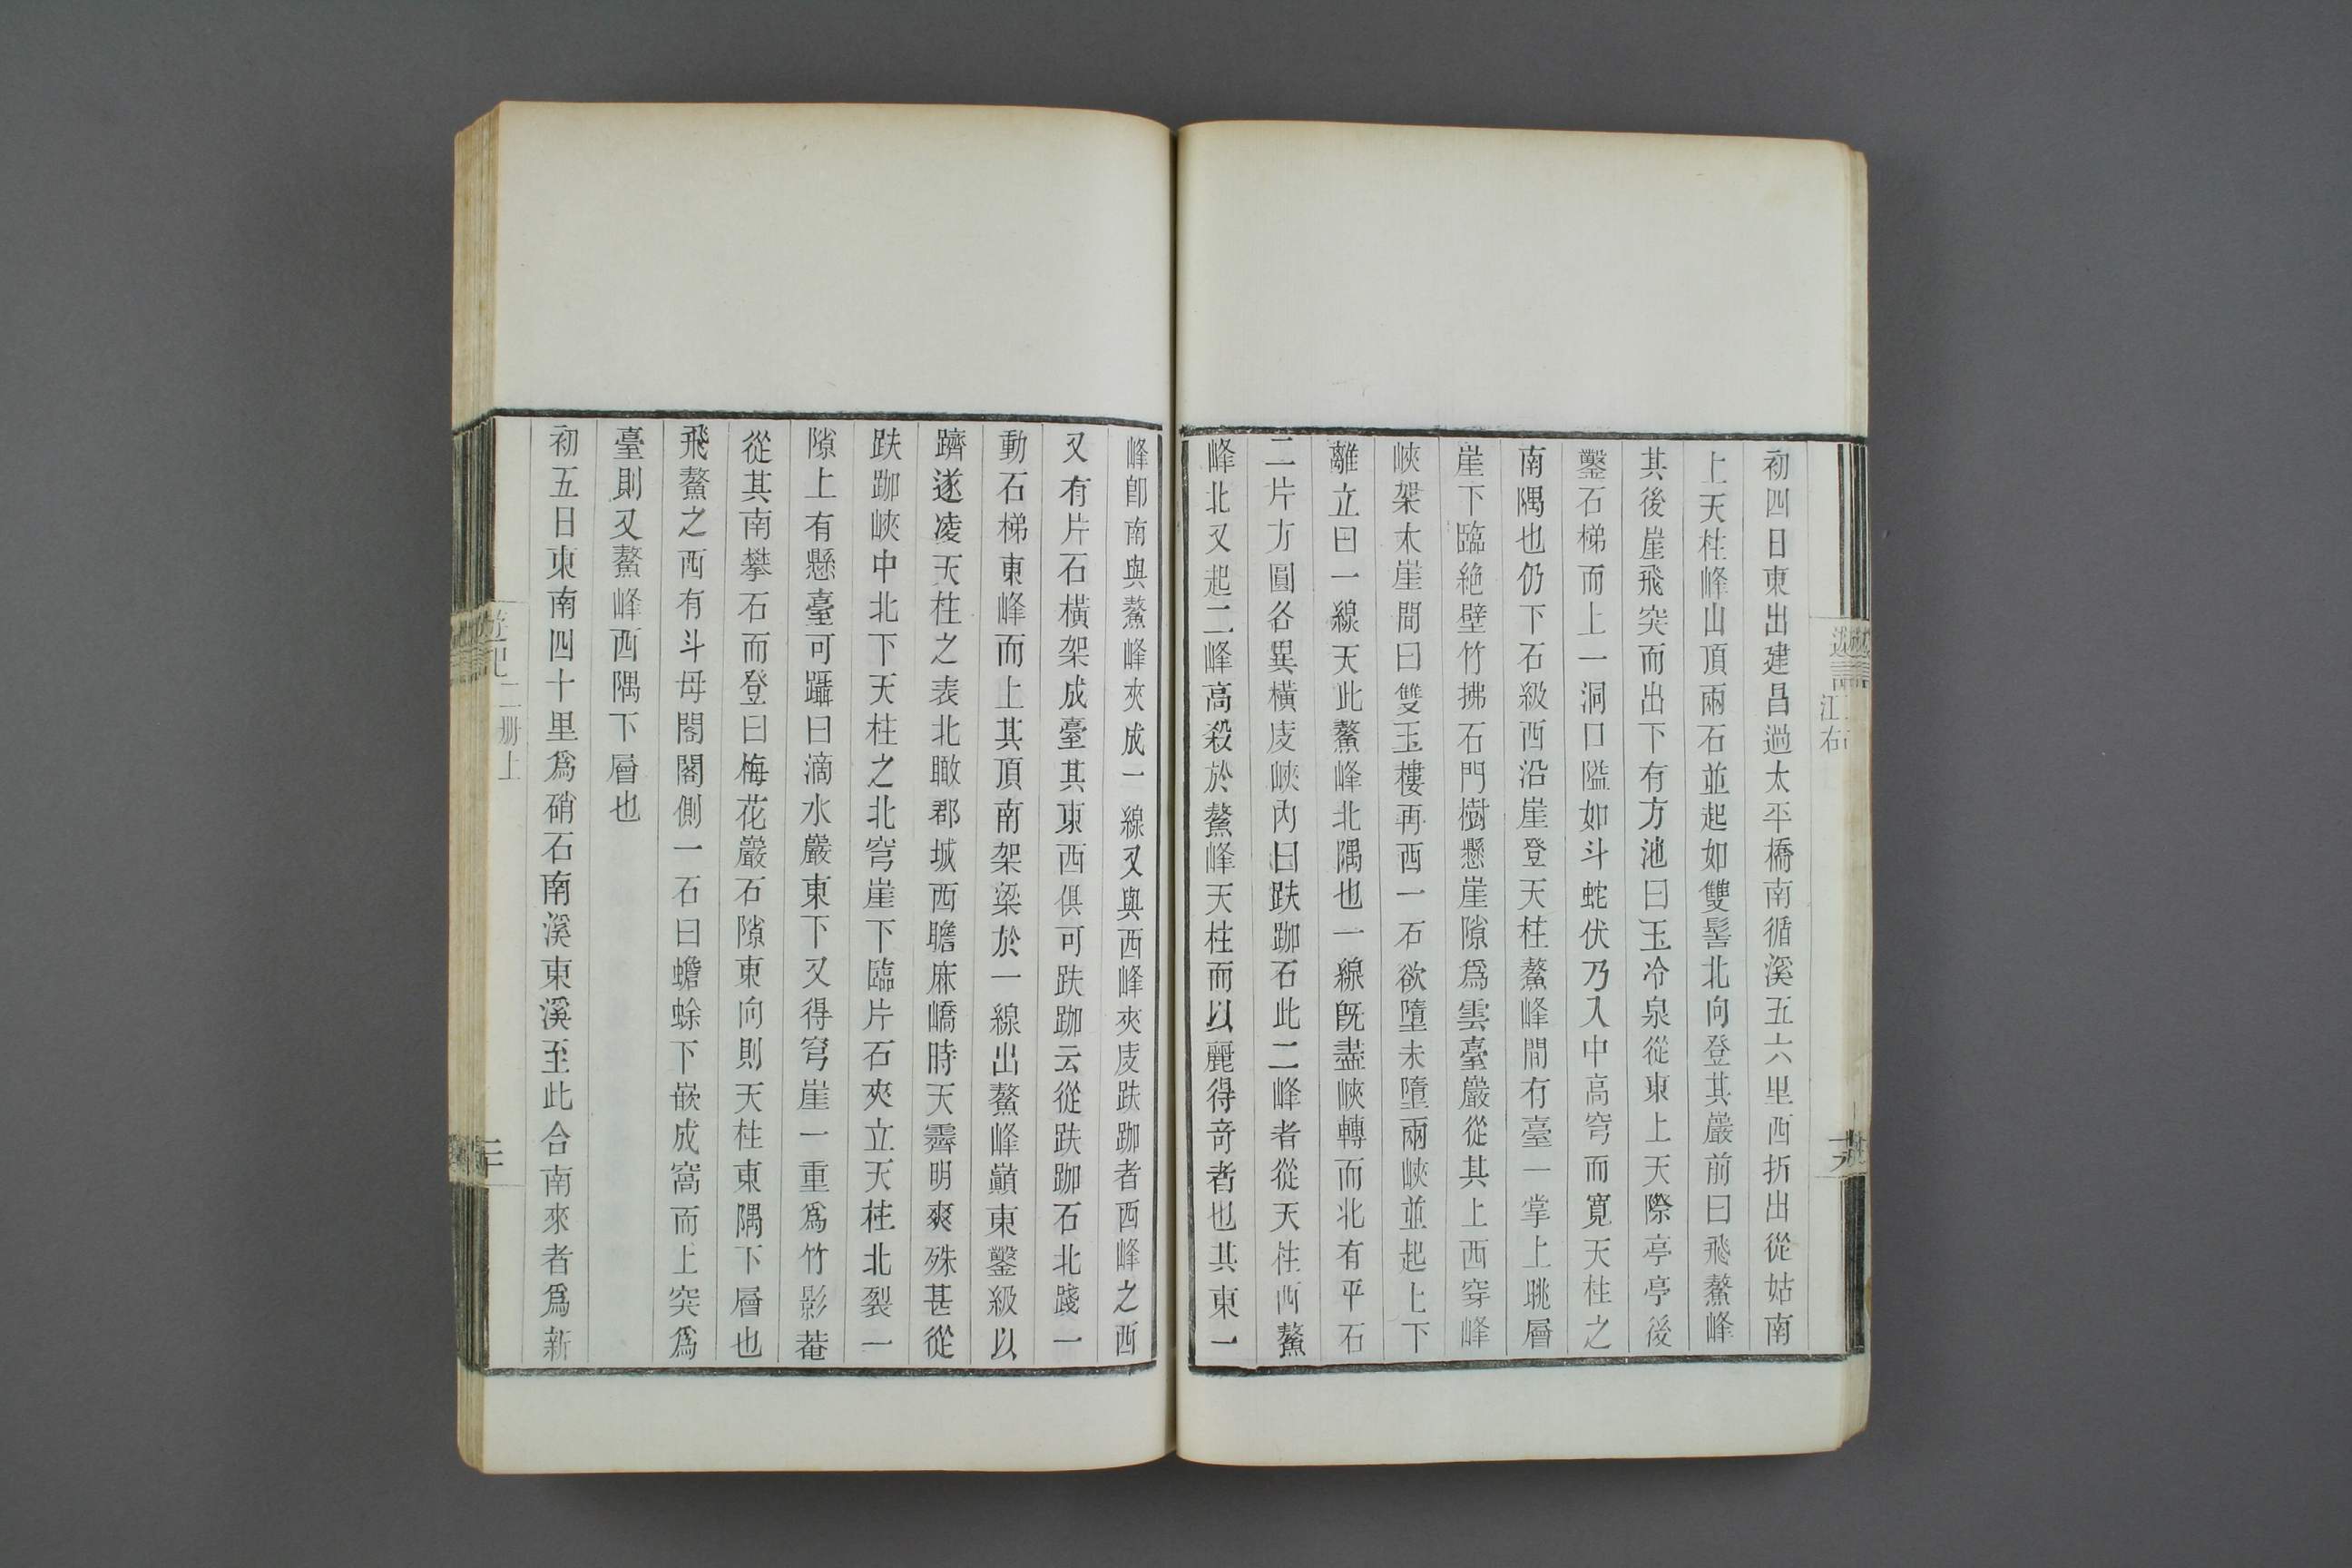 初四日東出建昌過太平橋南循溪五六里西折出從姑南
上天柱峰山頂兩石並起如雙髻北向登其巖前曰飛鰲峰
其後崖飛突而出下有方池曰玉冷泉從東上天際亭亭後
鑿石梯而上一洞口隘如斗蛇伏乃入中高穹而寬天柱之
南隅也仍下石級西沿崖登天柱鰲峰間有臺一掌上眺層
崖下臨絶壁竹拂石門樹懸崖隙爲雲臺巖從其上西穿峰
峽架木崖間曰雙玉樓再西一石欲墮未墮兩峽並起上下
離立曰一線天此鰲峰北隅也一線旣盡峽轉而北有平石
二片方圓各異橫庋峽內曰趺跏石此二峰者從天柱西鰲
峰北又起二峰高殺於鰲峰天柱而以麗得奇者也其東一
峰卽南與鰲峰夾成一線又與西峰夾庋趺跏者西峰之西
又有片石橫架成臺其東西俱可趺跏云從趺跏石北踐一
動石梯東峰而上其頂南架梁於一線出鰲峰巔東鑿級以
躋遂凌天柱之表北瞰郡城西瞻麻嶠時天霽明爽殊甚從
趺跏峽中北下天柱之北穹崖下臨片石夾立天柱北裂一
隙上有懸臺可躡曰滴水巖東下又得穹崖一重爲竹影菴
從其南攀石而登曰梅花巖石隙東向則天柱東隅下層也
飛鰲之西有斗母閣閣側一石曰蟾蜍下嵌成窩而上突爲
臺則又鰲峰西隅下層也
初五日東南四十里爲硝石南溪東溪至此合南來者爲新
遊記
二册上
二十
江右